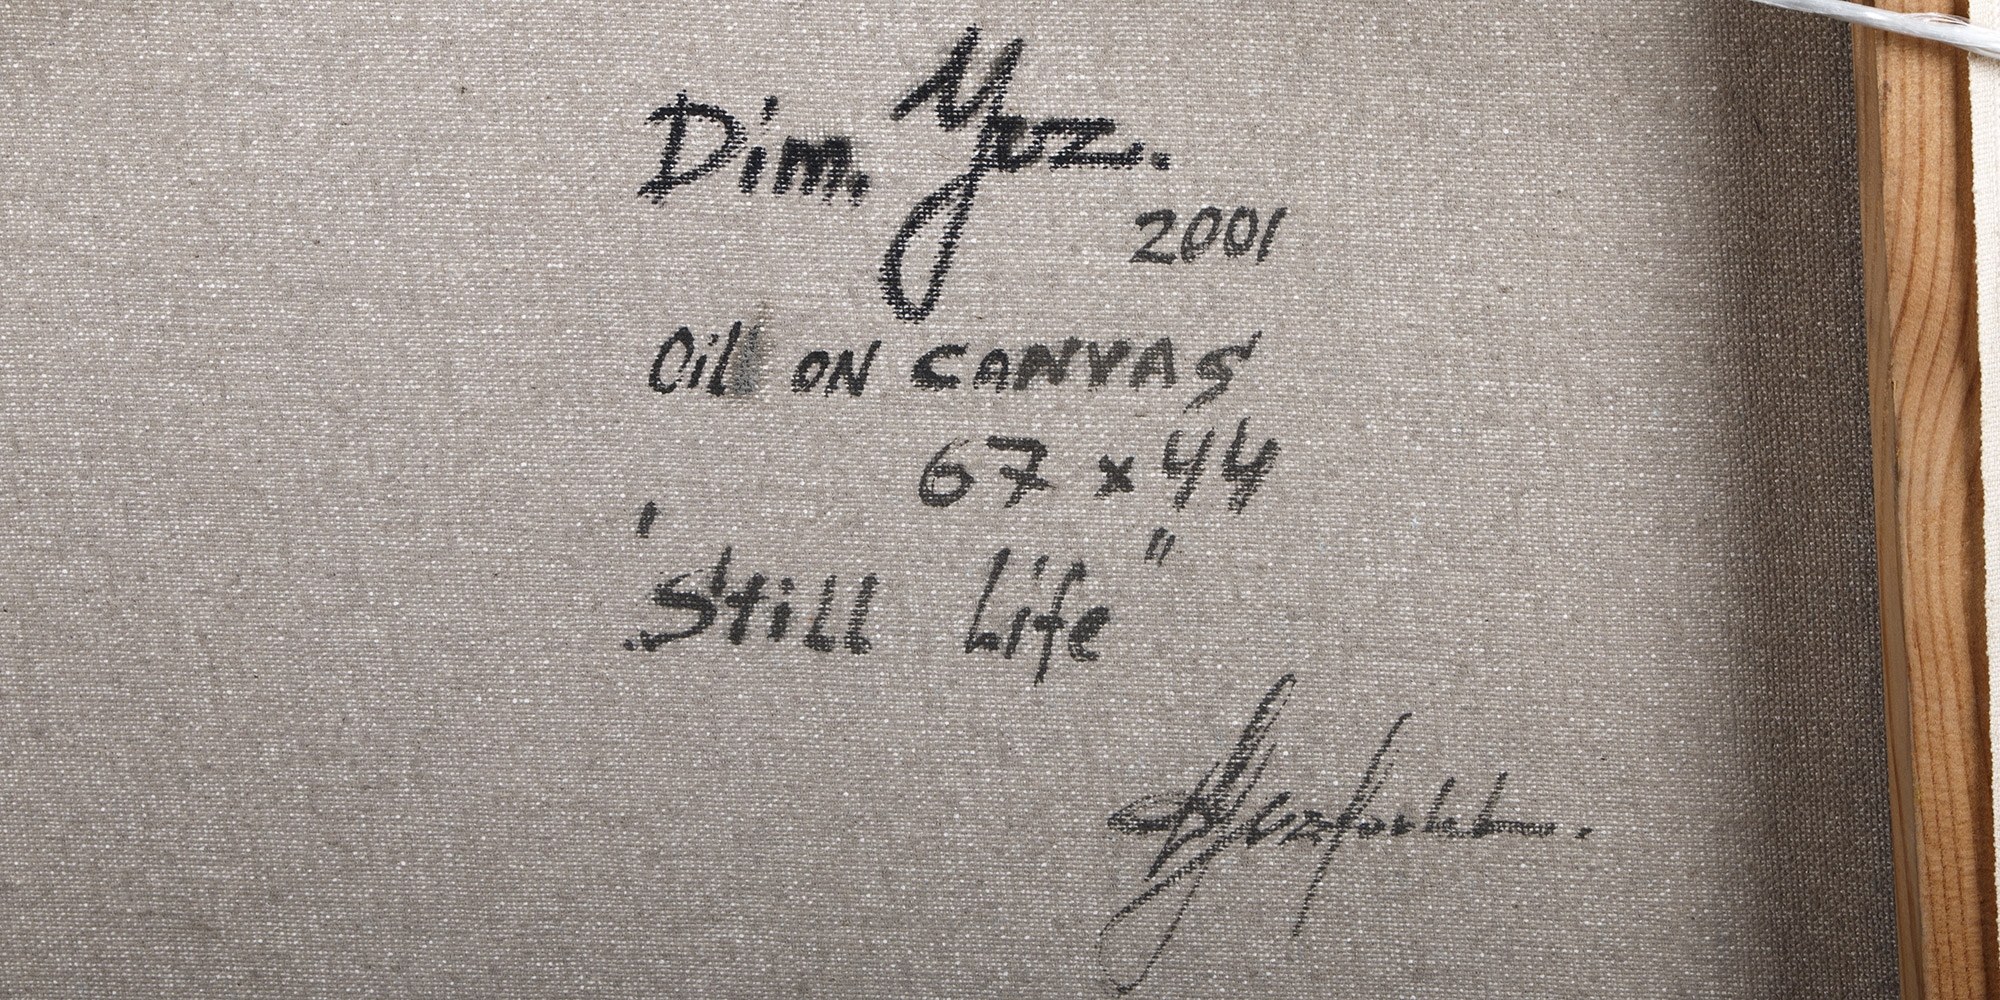 Dim. Yuz.
2001
Oil ON CANVAS
67 x 44
'Still Life"